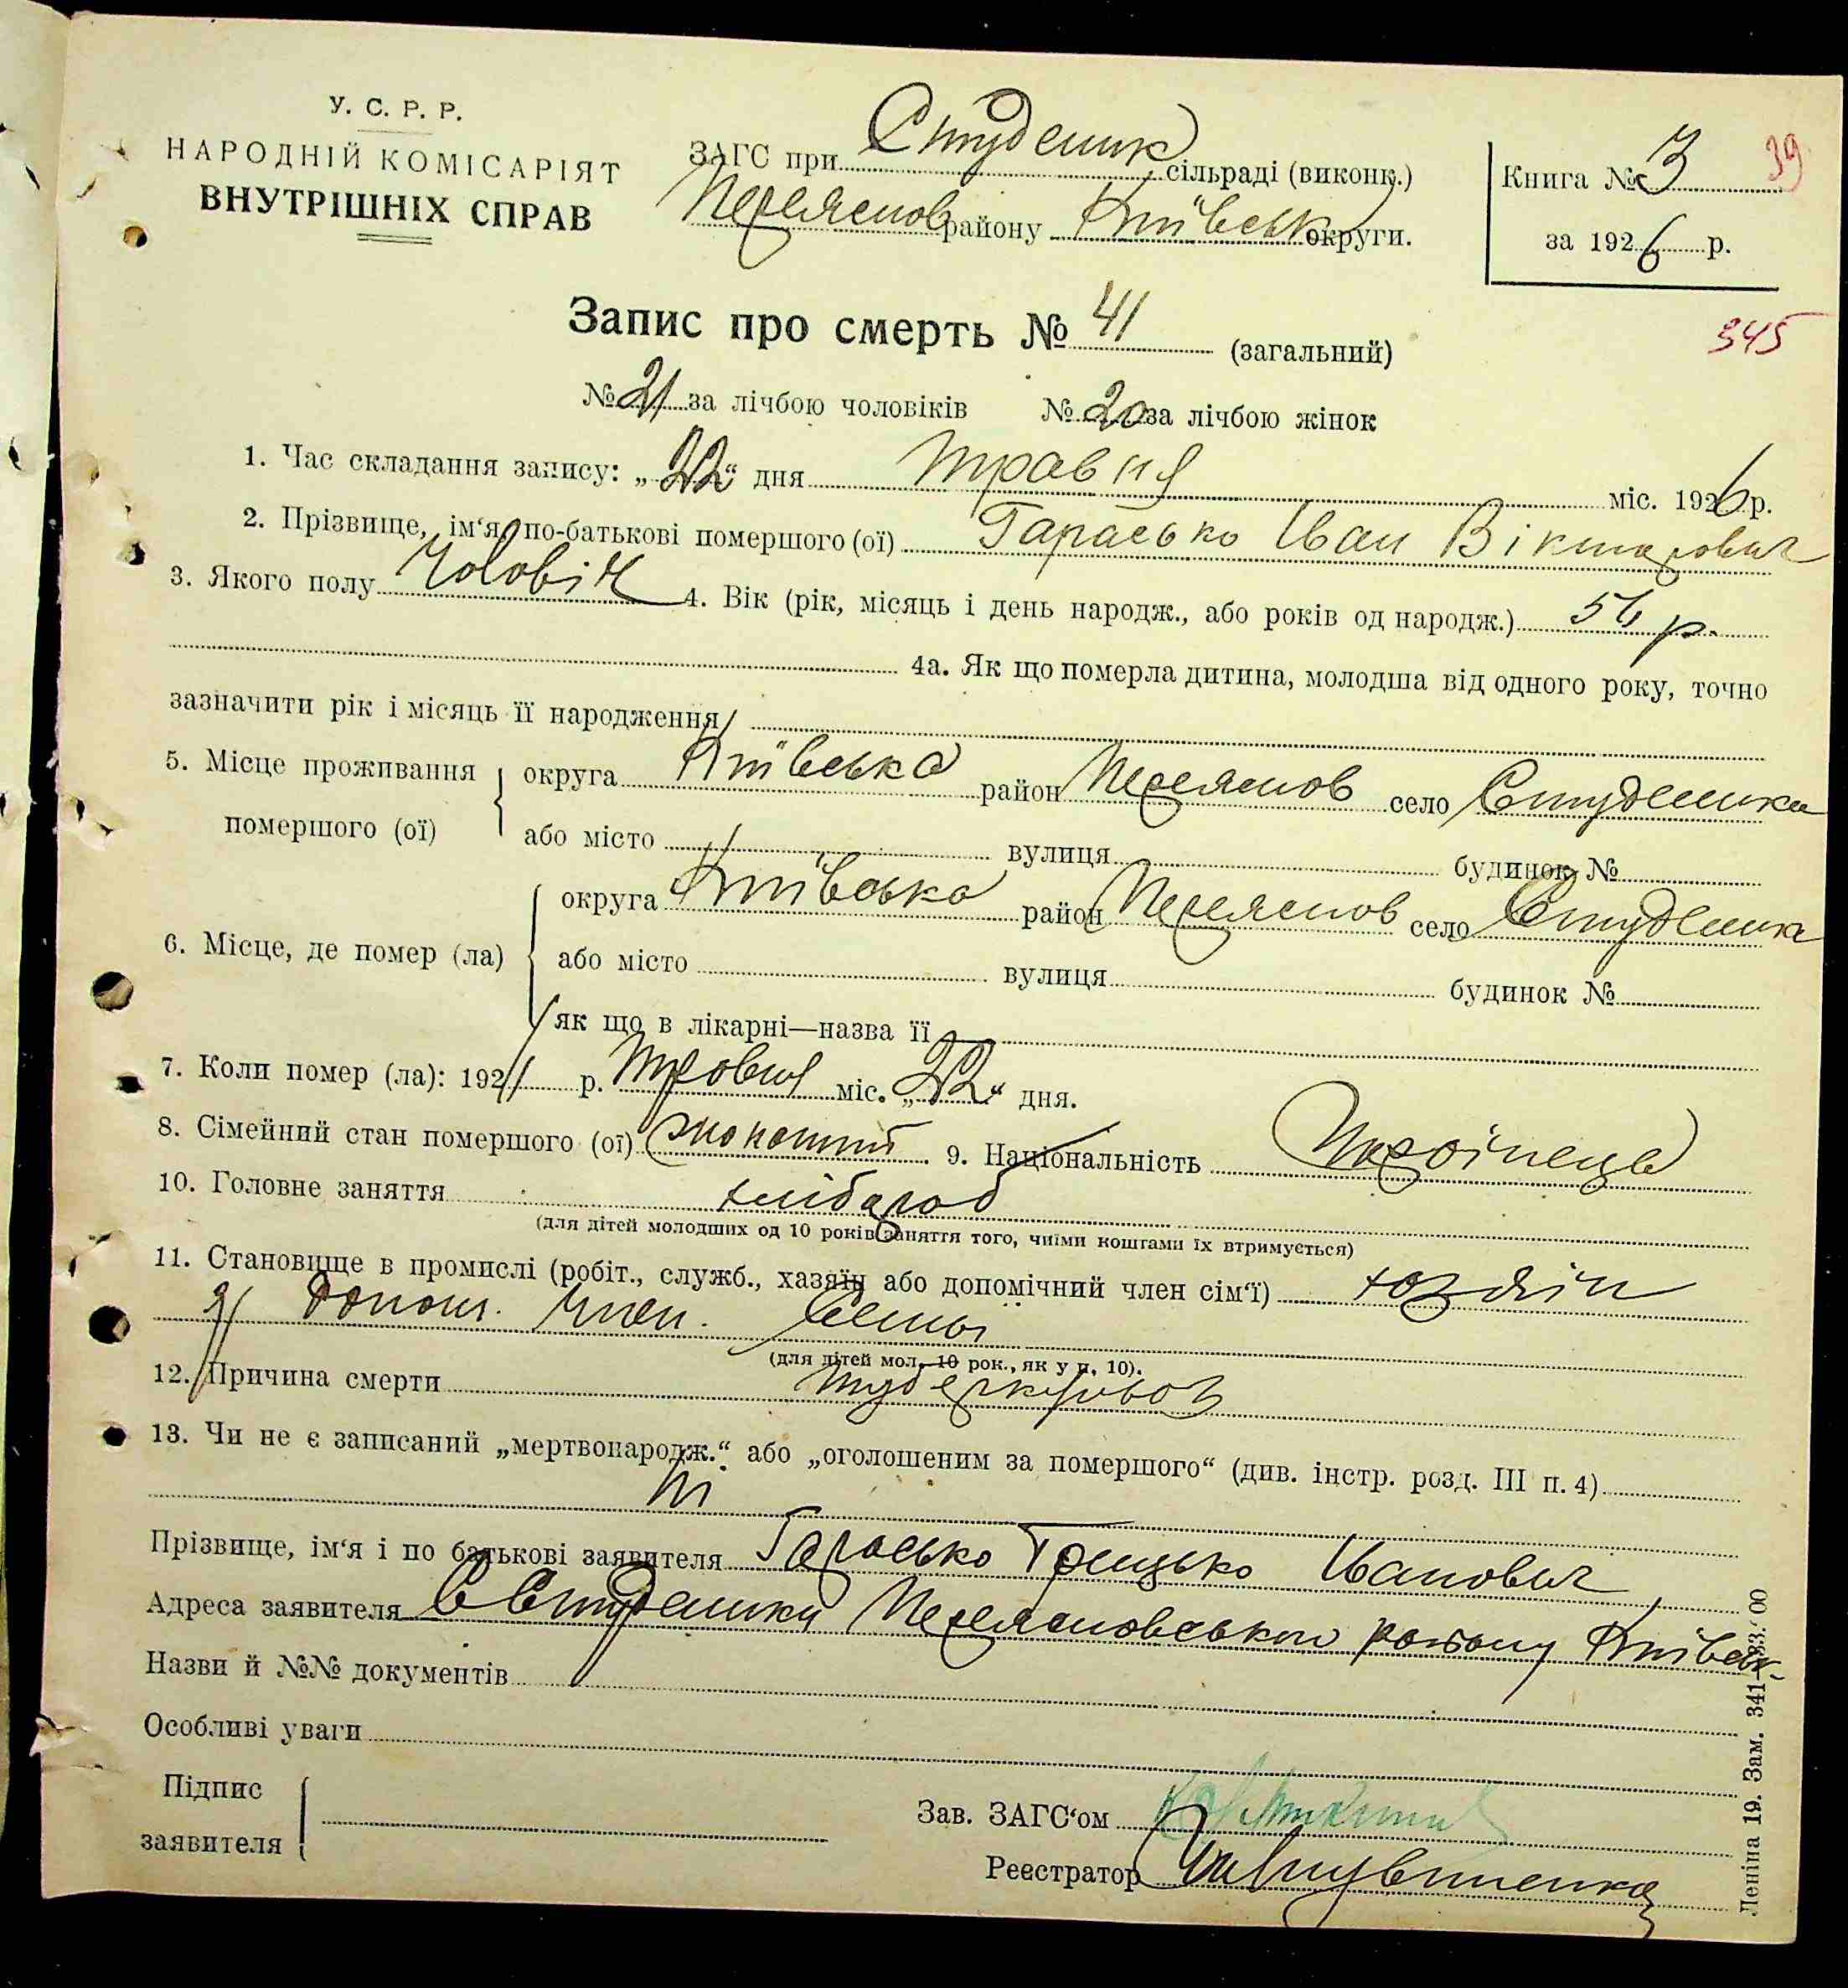 У. С. Р. Р.
НАРОДНІЙ КОМІСАРІЯТ
ВНУТРІШНІХ СПРАВ
ЗАГС при Студеник сільраді (виконк.)
Переяслов району Київськ округи.
Книга № 3 39
за 1926 р.
Запис про смерть № 41 (загальний)
345
№ 21 за лічбою чоловіків № 20 за лічбою жінок
1. Час складання запису: „22“ дня травня міс. 1926 р.
2. Прізвище, ім‘я, по-батькові помершого (ої) Гарасько Іван Вікторович
3. Якого полу Чоловіч 4. Вік (рік, місяць і день народж., або років од народж.) 56 р.
4а. Як що померла дитина, молодша від одного року, точно
зазначити рік і місяць її народження
5. Місце проживання помершого (ої) округа Київська район Переяслов село Студеники
або місто вулиця будинок №
6. Місце, де помер (ла) округа Київська район Переяслов село Студеники
або місто вулиця будинок №
як що в лікарні—назва її
7. Коли помер (ла): 192 р. Травня міс. „22“ дня.
8. Сімейний стан помершого (ої) жонатий 9. Національність Українець
10. Головне заняття хлібароб
(для дітей молодших од 10 років заняття того, чиїми коштами їх втримується)
11. Становище в промислі (робіт., служб., хазяїн або допомічний член сім‘ї) хозяін
допом. член. семьї
(для дітей мол. 10 рок., як у п. 10).
12. Причина смерти туберкульоз
13. Чи не є записаний „мертвонародж.“ або „оголошеним за помершого“ (див. інстр. розд. III п. 4)
Ні
Прізвище, ім‘я і по батькові заявителя Гарасько Грицько Іванович
Адреса заявителя С Студеники Переясловського району Київськ.
Назви й №№ документів
Особливі уваги
Підпис заявителя
Зав. ЗАГС‘ом
Реєстратор
Леніна 19. Зам. 341—33.